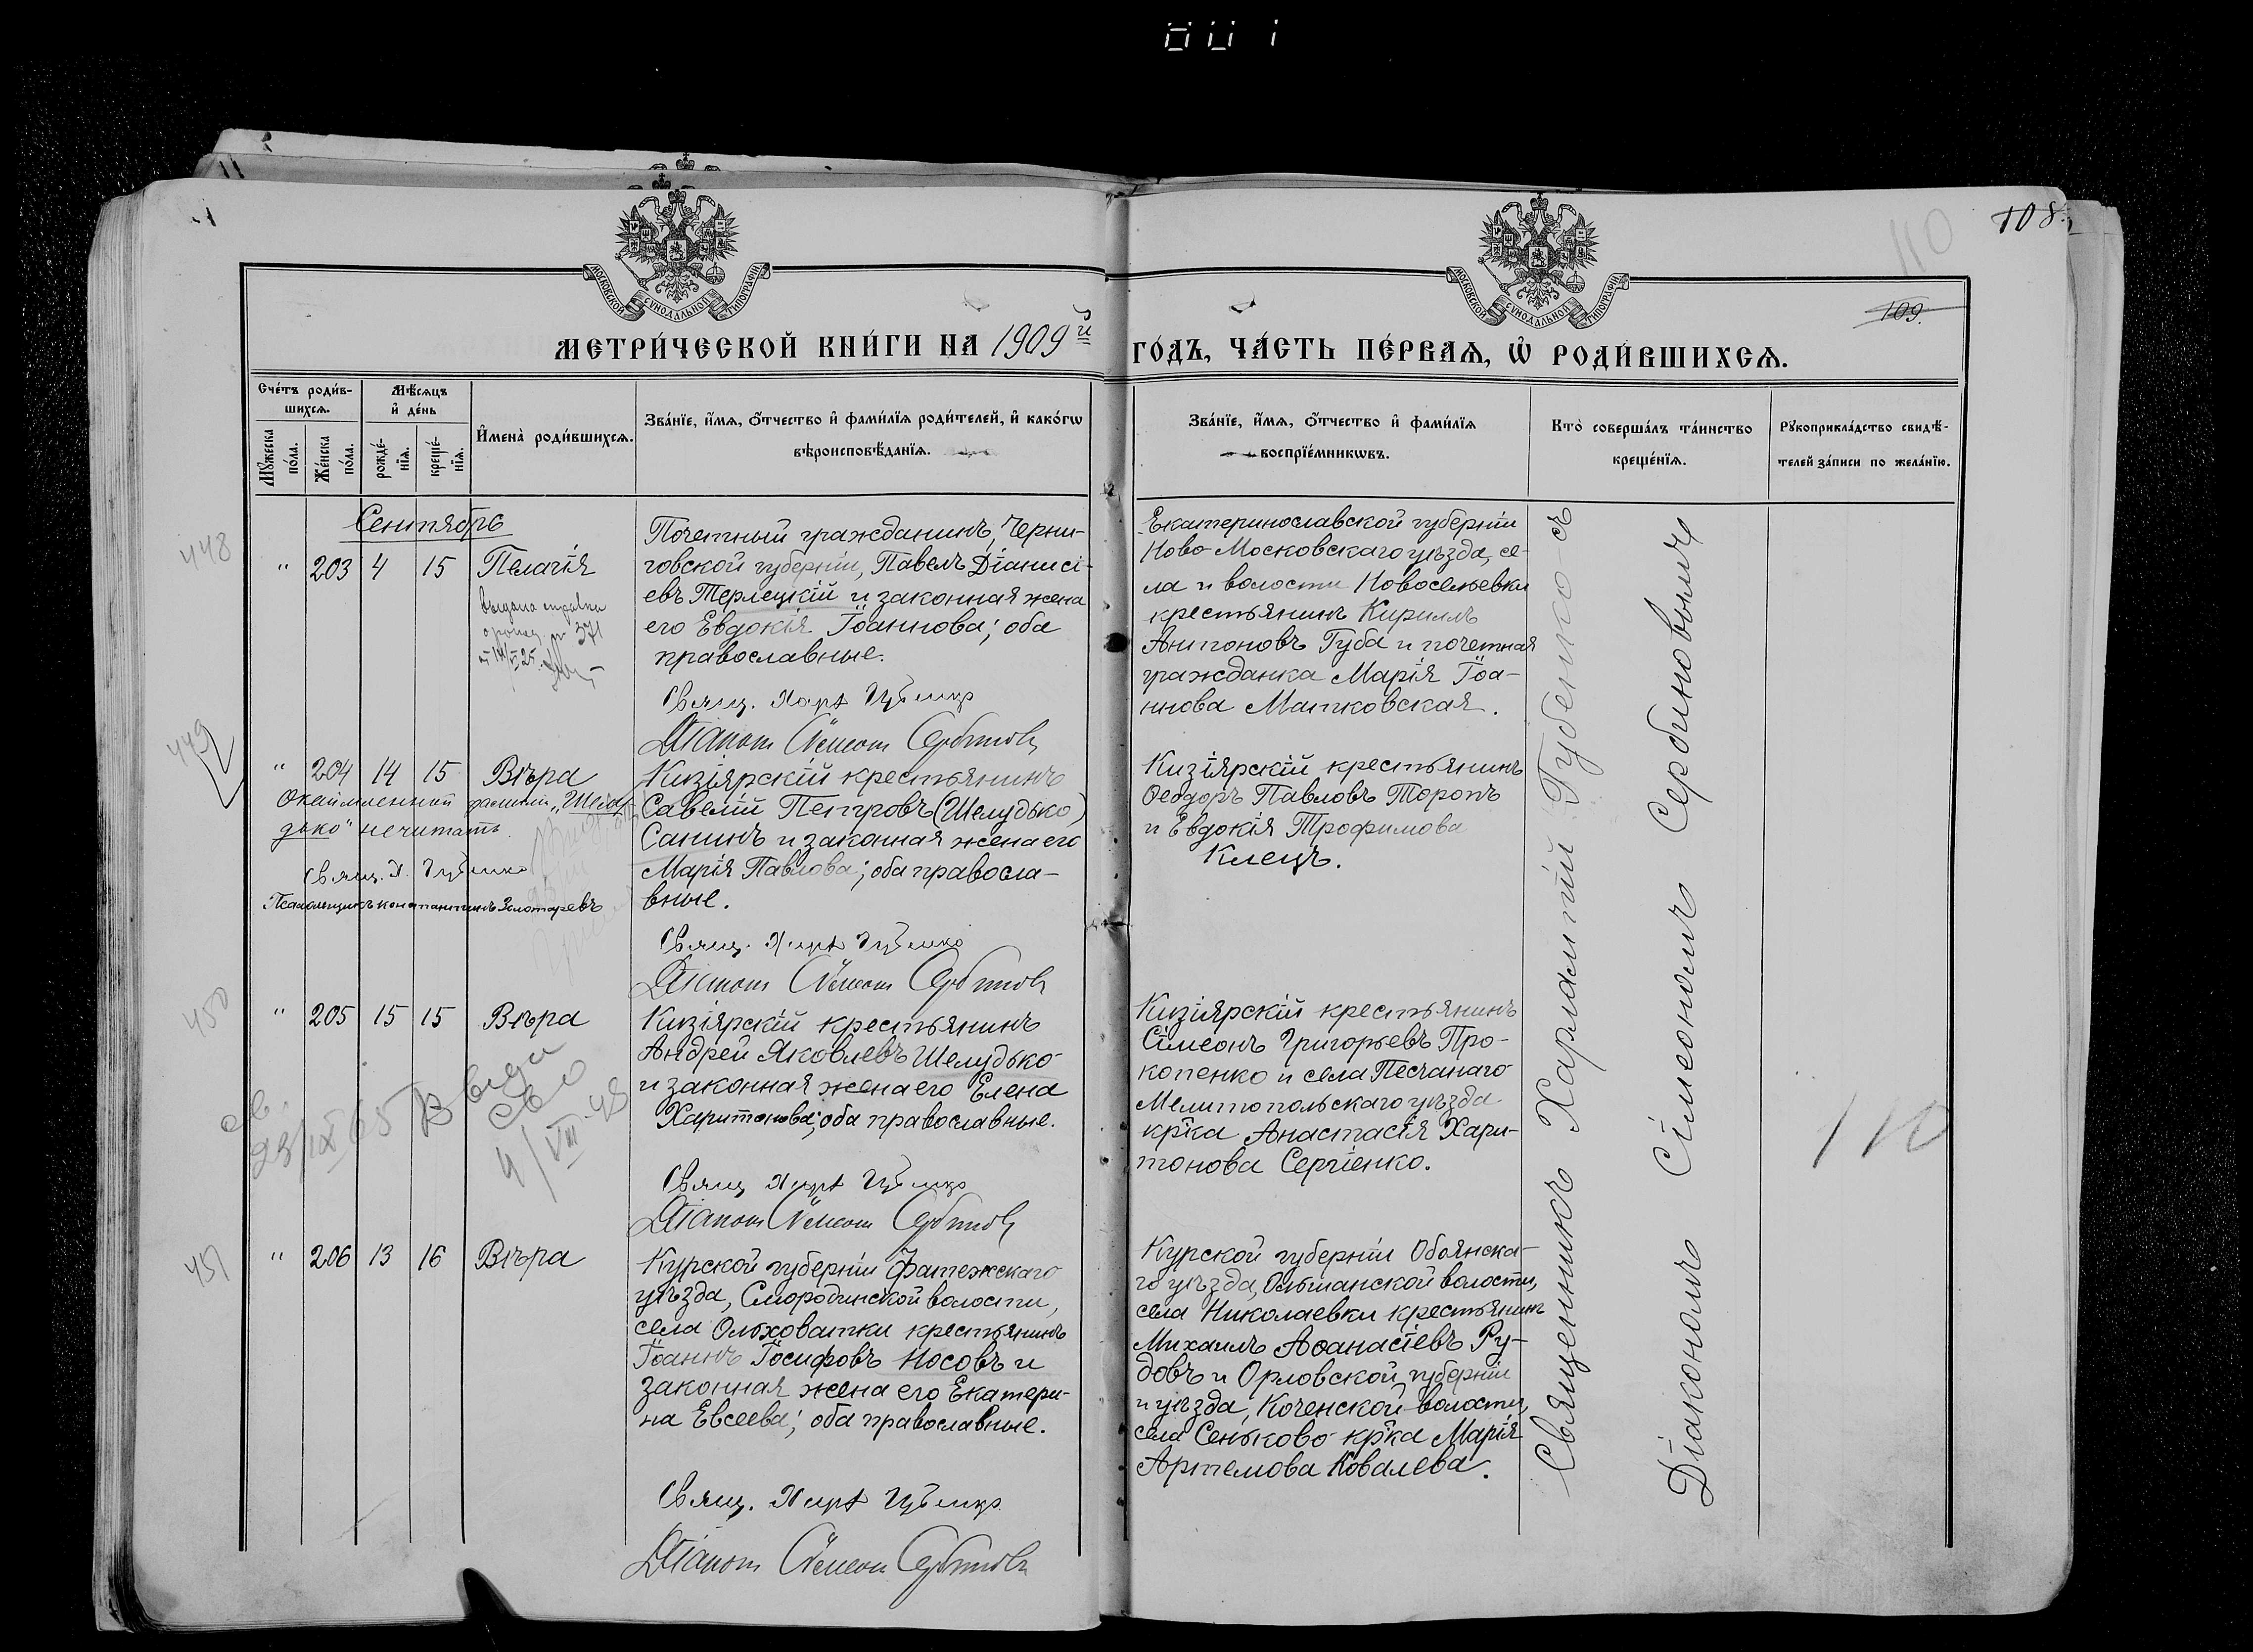 110
108.
109.
МОСКОВСКОЙ СУНОДАЛЬНОЙ ТИПОГРАФІИ
МОСКОВСКОЙ СУНОДАЛЬНОЙ ТИПОГРАФІИ
МЕТРИ́ЧЕСКОЙ КНИ́ГИ НА 1909й ГО́ДЪ, ЧА́СТЬ ПЕ́РВАѦ, Ѡ҆ РОДИ́ВШИХСѦ.
Сче́тъ роди́в-
шихсѧ.
Мꙋ́жеска по́ла.
Же́нска по́ла.
Мѣ́сѧцъ
и҆ де́нь
рожде́-
нїѧ.
креще́-
нїѧ.
И҆мена̀ роди́вшихсѧ.
Зва́нїе, и҆́мѧ, ѻ҆́тчество и҆ фами́лїѧ роди́телей, и҆ како́гѡ
вѣроисповѣ́данїѧ.
Зва́нїе, и҆́мѧ, ѻ҆́тчество и҆ фами́лїѧ
воспрїе́мникѡвъ.
Кто̀ соверша́лъ та́инство
креще́нїѧ.
Рꙋкоприкла́дство свидѣ́-
телей за́писи по жела́нїю.
Сентябрь
448
" 203 4 15 Пелагія
выдана справка
№ 371
Почетный гражданинъ, Черни-
говской губерніи, Павелъ Діанисі-
евъ Терлецкій и законная жена
его Евдокія Іоаннова; оба
православные.
Свящ. Хар. Губенко
Діаконъ Сѵмеонъ Сербиновъ
Екатеринославской губерніи
Ново-Московскаго уѣзда, се-
ла и волости Новоселевки
крестьянинъ Кириллъ
Антоновъ Губа и почетная
гражданка Марія Іоа-
ннова Матковская.
449
" 204 14 15 Вѣра
Окаймленной фамиліи „Шелу-
дько" не читать.
Свящ. Х. Губенко
Псаломщикъ Константинъ Золотаревъ
Кизіярскій крестьянинъ
Савелій Петровъ (Шелудько)
Санинъ и законная жена его
Марія Павлова; оба правосла-
вные.
Свящ. Хар. Губенко
Діаконъ Сѵмеонъ Сербиновъ
Кизіярскій крестьянинъ
Ѳеодоръ Павловъ Торопъ
и Евдокія Трофимова
Клецъ.
450
" 205 15 15 Вѣра
св.
23/IX 65
4/VIII-48
Кизіярскій крестьянинъ
Андрей Яковлевъ Шелудько
и законная жена его Елена
Харитонова; оба православные.
Свящ. Хар. Губенко
Діаконъ Сѵмеонъ Сербиновъ
Кизіярскій крестьянинъ
Сімеонъ Григорьевъ Про-
копенко и села Песчанаго
Мелитопольскаго уѣзда
кр-ка Анастасія Хари-
тонова Сергіенко.
110
451
" 206 13 16 Вѣра
Курской губерніи Фатежскаго
уѣзда, Смородинской волости,
села Ольховатки крестьянинъ
Іоаннъ Іосифовъ Носовъ и
законная жена его Екатери-
на Евсеева; оба православные.
Свящ. Хар. Губенко
Діаконъ Сѵмеонъ Сербиновъ
Курской губерніи Обоянска-
го уѣзда, Ольшанской волости,
села Николаевки крестьянинъ
Михаилъ Аѳанасіевъ Ру-
довъ и Орловской губерніи
и уѣзда, Коченской волости,
села Сеньково кр-ка Марія
Артемова Ковалева.
Священникъ Харлампій Губенко съ
Діакономъ Сімеономъ Сербиновымъ